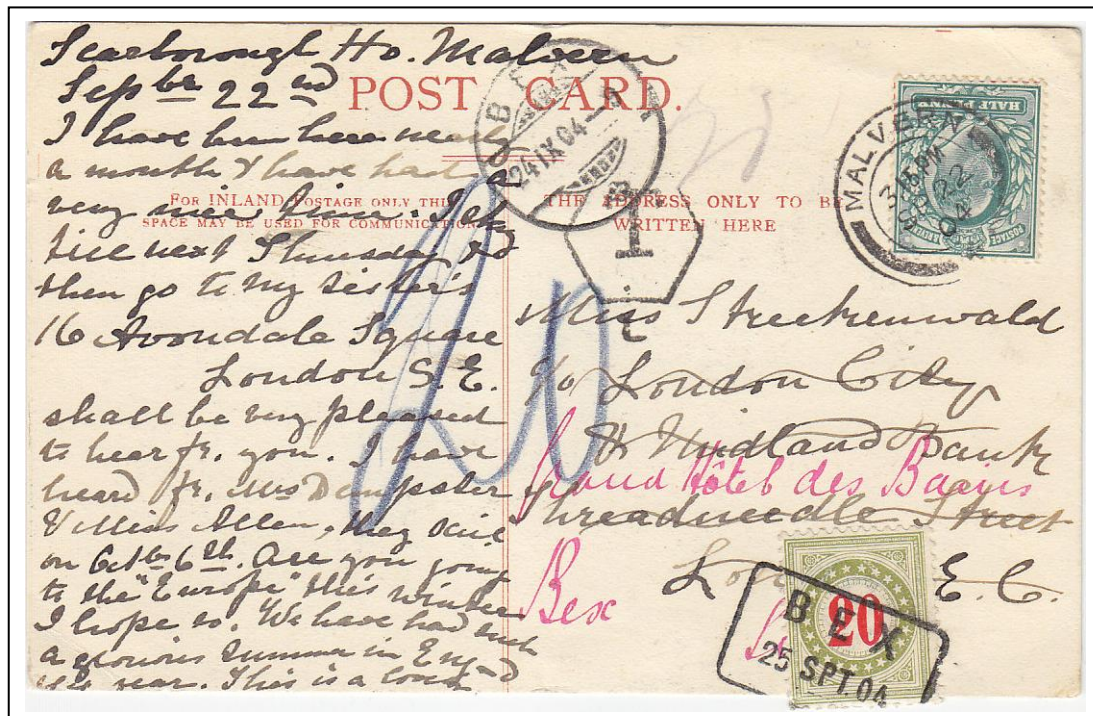 Scarborough Ho. Malvern
Sepbr 22nd
POST CARD.
I have been here nearly
a month & have had a
very nice time. I
till next Thursday &
then go to my sister's
16 Avondale Square
London S.E.
shall be very pleased
to hear fr. you. I have
heard fr. Mrs Dempster
& Miss Allen, they sail
on Octbr 6th. Are you going
to the "Europe" this winter
I hope so. We have had such
a glorious summer in Eng-d
this year. This is a
FOR INLAND POSTAGE ONLY THIS
SPACE MAY BE USED FOR COMMUNICATION
THE ADDRESS ONLY TO BE
WRITTEN HERE
BEX
24 IX 04
T
L
20
MALVERN
3 15 PM
SP 22
04
HALF PENNY
POSTAGE
Miss Streckenwald
c/o London City
& Midland Bank
Grand Hôtel des Bains
Threadneedle Street
Bex
E.C.
20
BEX
25 SPT. 04